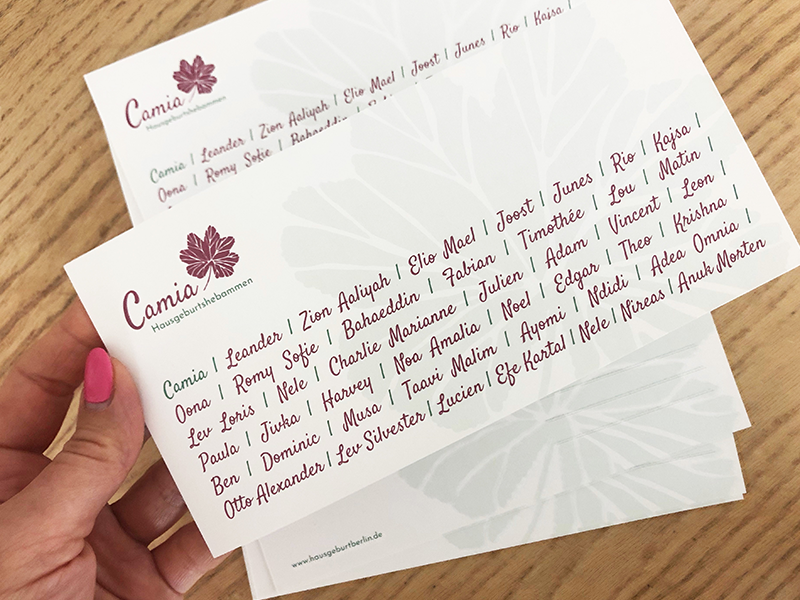 Camia
Hausgeburtshebammen
Camia | Leander | Zion Aaliyah | Elio Mael | Joost | Junes | Rio | Kajsa |
Oona | Romy Sofie | Bahaeddin
Camia
Hausgeburtshebammen
Camia | Leander | Zion Aaliyah | Elio Mael | Joost | Junes | Rio | Kajsa |
Oona | Romy Sofie | Bahaeddin | Fabian | Timothée | Lou | Matin |
Lev Loris | Nele | Charlie Marianne | Julien | Adam | Vincent | Leon |
Paula | Jivka | Harvey | Noa Amalia | Noel | Edgar | Theo | Krishna |
Ben | Dominic | Musa | Taavi Malim | Ayomi | Ndidi | Adea Omnia |
Otto Alexander | Lev Silvester | Lucien | Efe Kartal | Nele | Nireas | Anuk Morten
www.hausgeburtberlin.de